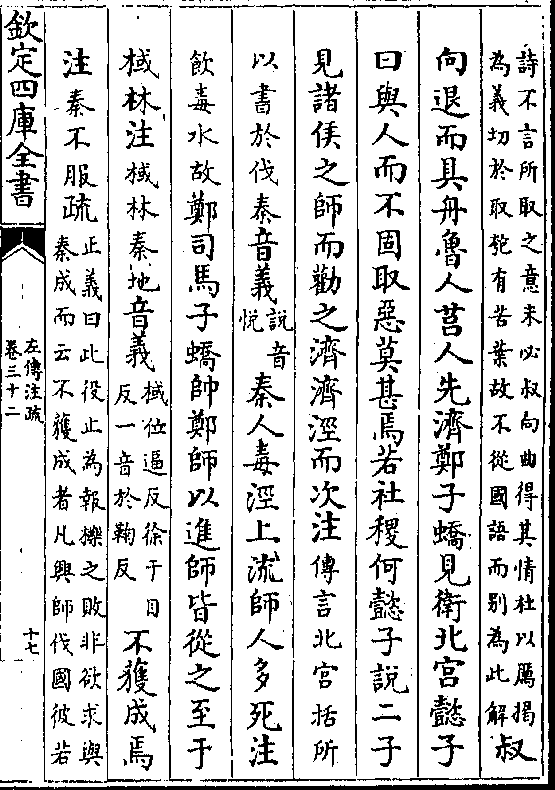 詩不言所取之意未必叔向曲得其情杜以厲揭
為義切於取匏有苦葉故不從國語而别為此解
叔
向退而具舟魯人莒人先濟鄭子蟜見衛北宮懿子
曰與人而不固取惡莫甚焉若社稷何懿子說二子
見諸侯之師而勸之濟濟涇而次注傳言北宮括所
以書於伐秦音義
說音
悅
秦人毒涇上流師人多死注
飲毒水故鄭司馬子蟜帥鄭師以進師皆從之至于
棫林注棫林秦地音義
棫位逼反徐于目
反一音於鞠反
不獲成焉
注秦不服疏
正義曰此役止為報櫟之敗非欲求與
秦成而云不獲成者凡興師伐國彼若
欽定四庫全書
左傳注疏
卷三十二
十七